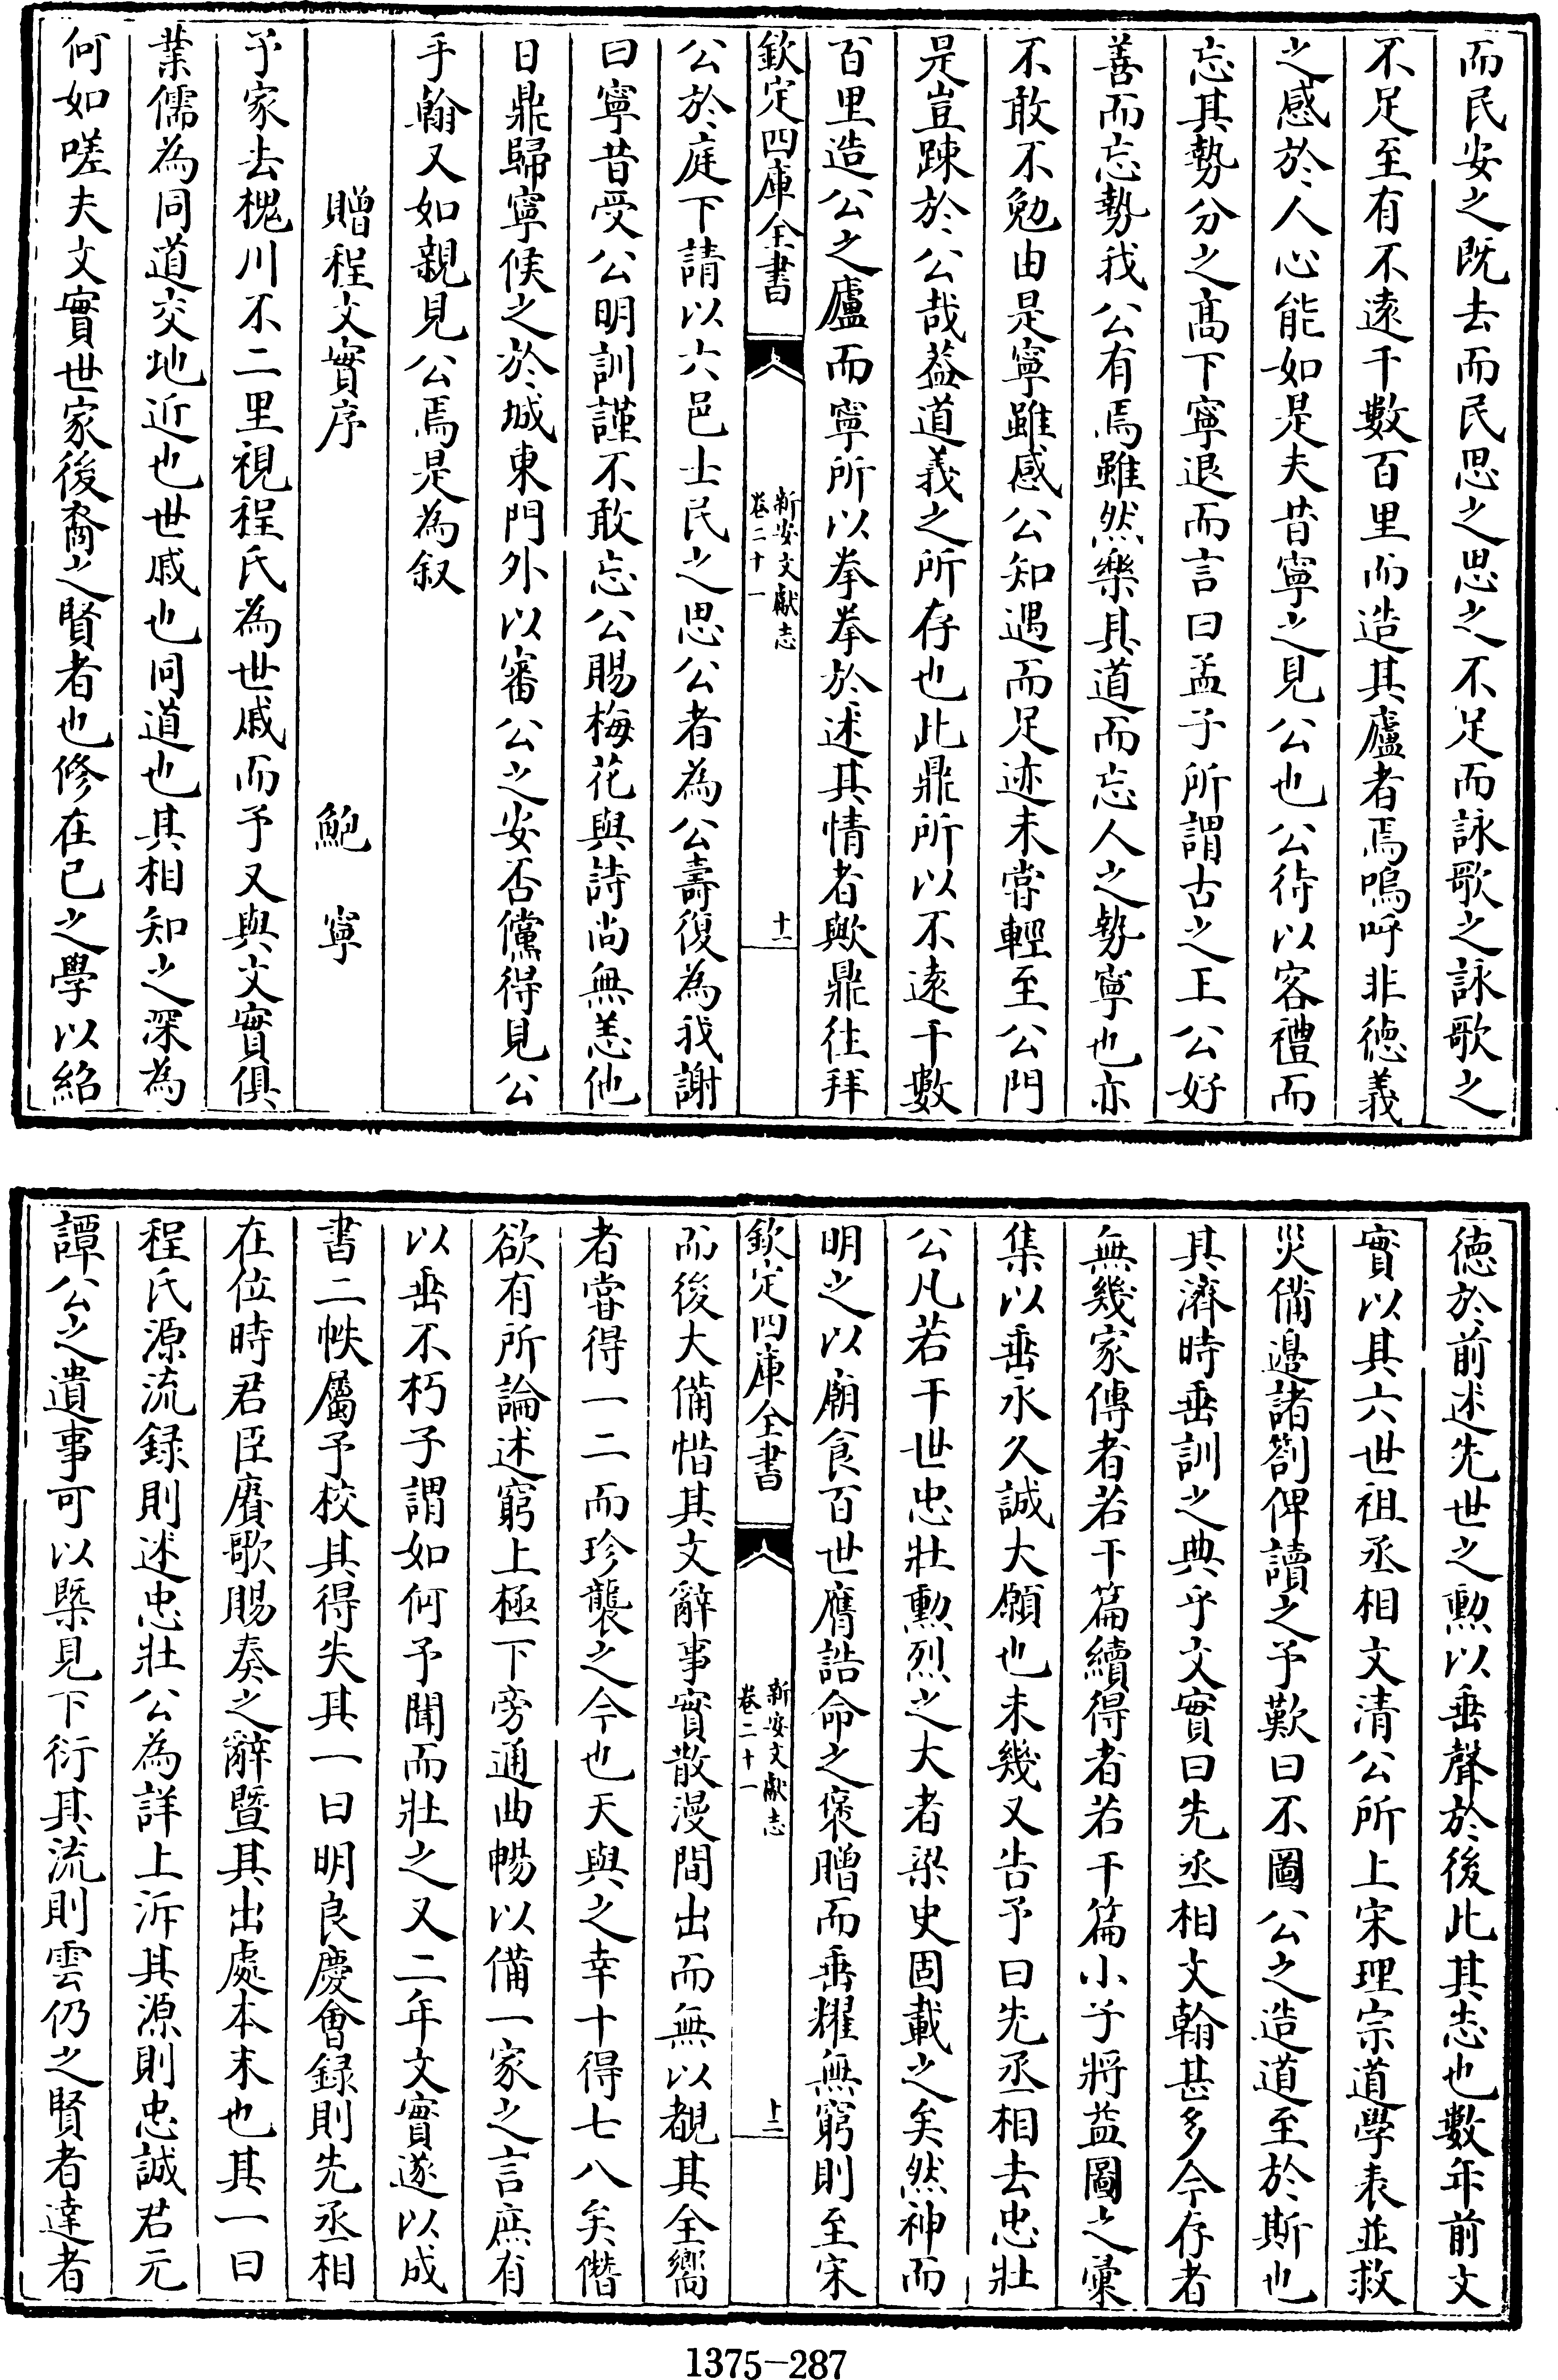 而民安之既去而民思之思之不足而詠歌之詠歌之
不足至有不遠千數百里而造其廬者焉嗚呼非徳義
之感於人心能如是夫昔寧之見公也公待以客禮而
忘其勢分之髙下寧退而言曰孟子所謂古之王公好
善而忘勢我公有焉雖然樂其道而忘人之勢寧也亦
不敢不勉由是寧雖感公知遇而足迹未嘗輕至公門
是豈踈於公哉葢道義之所存也此鼎所以不遠千數
百里造公之廬而寧所以拳拳於述其情者歟鼎往拜
欽定四庫全書
新安文獻志
卷二十一
十一
公於庭下請以六邑士民之思公者為公壽復為我謝
曰寧昔受公明訓謹不敢忘公賜梅花與詩尚無恙他
日鼎歸寧候之於城東門外以審公之安否儻得見公
手翰又如親見公焉是為叙
贈程文實序 鮑寧
予家去槐川不二里視程氏為世戚而予又與文實俱
業儒為同道交地近也世戚也同道也其相知之深為
何如嗟夫文實世家後裔之賢者也修在己之學以紹
徳於前述先世之勲以垂聲於後此其志也數年前文
實以其六世祖丞相文清公所上宋理宗道學表並救
災備邊諸劄俾讀之予歎曰不圖公之造道至於斯也
其濟時垂訓之典乎文實曰先丞相文翰甚多今存者
無幾家傳者若干篇續得者若干篇小子將益圖之彙
集以垂永久誠大願也未幾又告予曰先丞相去忠壯
公凡若干世忠壯勲烈之大者梁史固載之矣然神而
明之以廟食百世膺誥命之褒贈而垂耀無窮則至宋
欽定四庫全書
新安文獻志
卷二十一
十二
而後大備惜其文辭事實散漫間出而無以覩其全嚮
者嘗得一二而珍襲之今也天與之幸十得七八矣僭
欲有所論述窮上極下旁通曲暢以備一家之言庶有
以垂不朽子謂如何予聞而壯之又二年文實遂以成
書二帙屬予校其得失其一曰明良慶會録則先丞相
在位時君臣賡歌賜奏之辭暨其出處本末也其一曰
程氏源流録則述忠壯公為詳上泝其源則忠誠君元
譚公之遺事可以槩見下衍其流則雲仍之賢者達者
1375-287